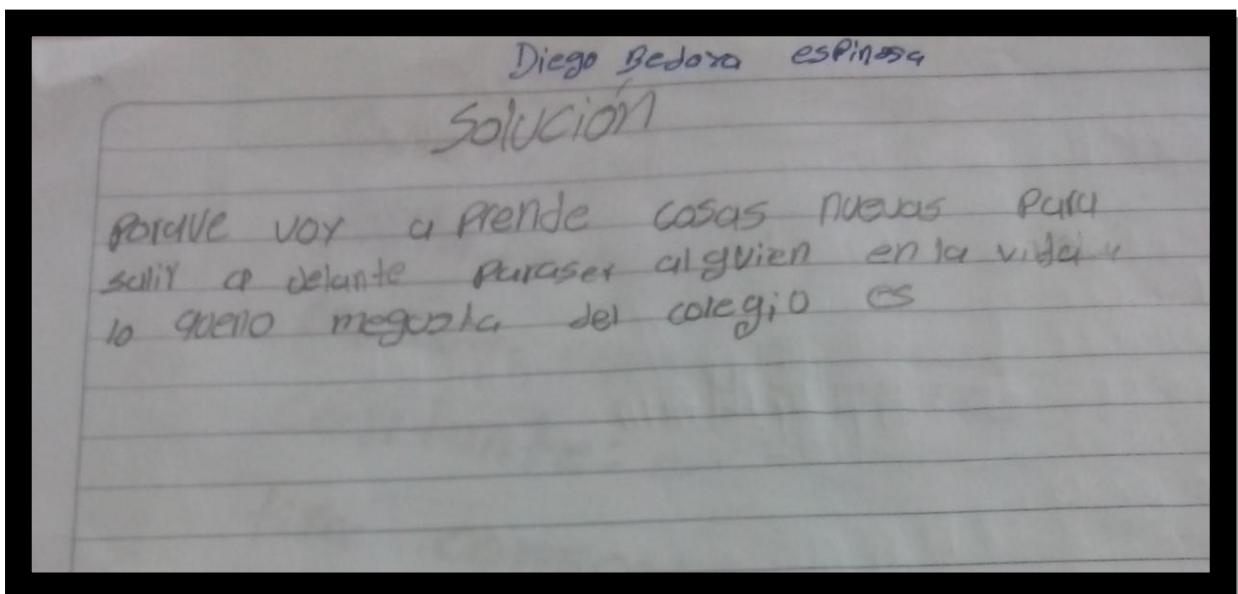 Diego Bedoya espinosa
Solución
Porque voy a prende cosas nuevas para
salir a delante paraser alguien en la vida y
lo queno megusta del colegio es